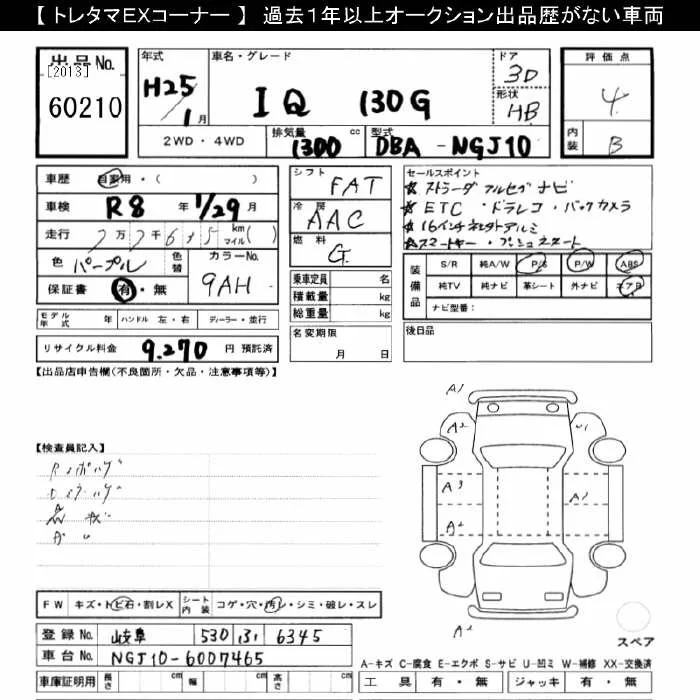 【 トレタマEXコーナー 】 過去１年以上オークション出品歴がない車両
出品No. [2013] 60210
年式 H25/1月
車名・グレード IQ 130G
ドア 3D
形状 HB
評価点 4
内装 B
2WD・4WD 排気量 1300 cc 型式 DBA-NGJ10
車歴 自家用・( )
シフト FAT
セールスポイント
車検 R8年 1/29月
冷房 AAC
☆ストラーダ フルセグ ナビ
☆ETC・ドラレコ・バックカメラ
☆16インチ アルミ
☆スマートキー・プッシュスタート
走行 7万7千6 5 km マイル( )
燃料 G
色 パープル 色替 カラーNo. 9AH
保証書 有・無
乗車定員 名
積載量 kg
総重量 kg
装備品 S/R 純A/W P/S P/W ABS
純TV 純ナビ 革シート 外ナビ エアB
ナビ型番：
モデル年式 年 ハンドル 左・右 ディーラー・並行
名変期限 月 日
後日品
リサイクル料金 9,270 円 預託済
【出品店申告欄(不良箇所・欠品・注意事項等)】
A1
A2 U1
【検査員記入】
A3 A1
A2
A2
FW キズ・トビ石・割レX シート内装 コゲ・穴・汚レ・シミ・破レ・スレ
登録No. 岐阜 530 131 6345
スペア
車台No. NGJ10-6007465
A-キズ C-腐食 E-エクボ S-サビ U-凹ミ W-補修 XX-交換済
車庫証明用 長さ cm 幅 cm 高さ cm
工具 有・無 ジャッキ 有・無